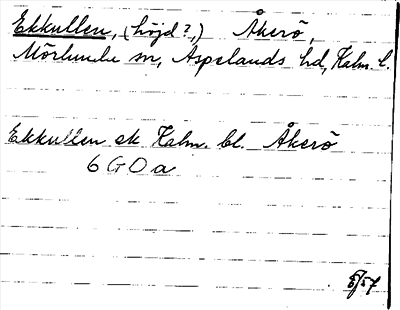 Ekkullen, (höjd?,) Åkerö,
Mörlunda sn, Aspelands hd, Kalm. l.
Ekkullen ek Kalm. bl. Åkerö
6 G 0 a
5/57